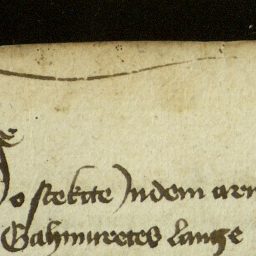 Do stekcte Jn dem arm
Gahmuretes lange